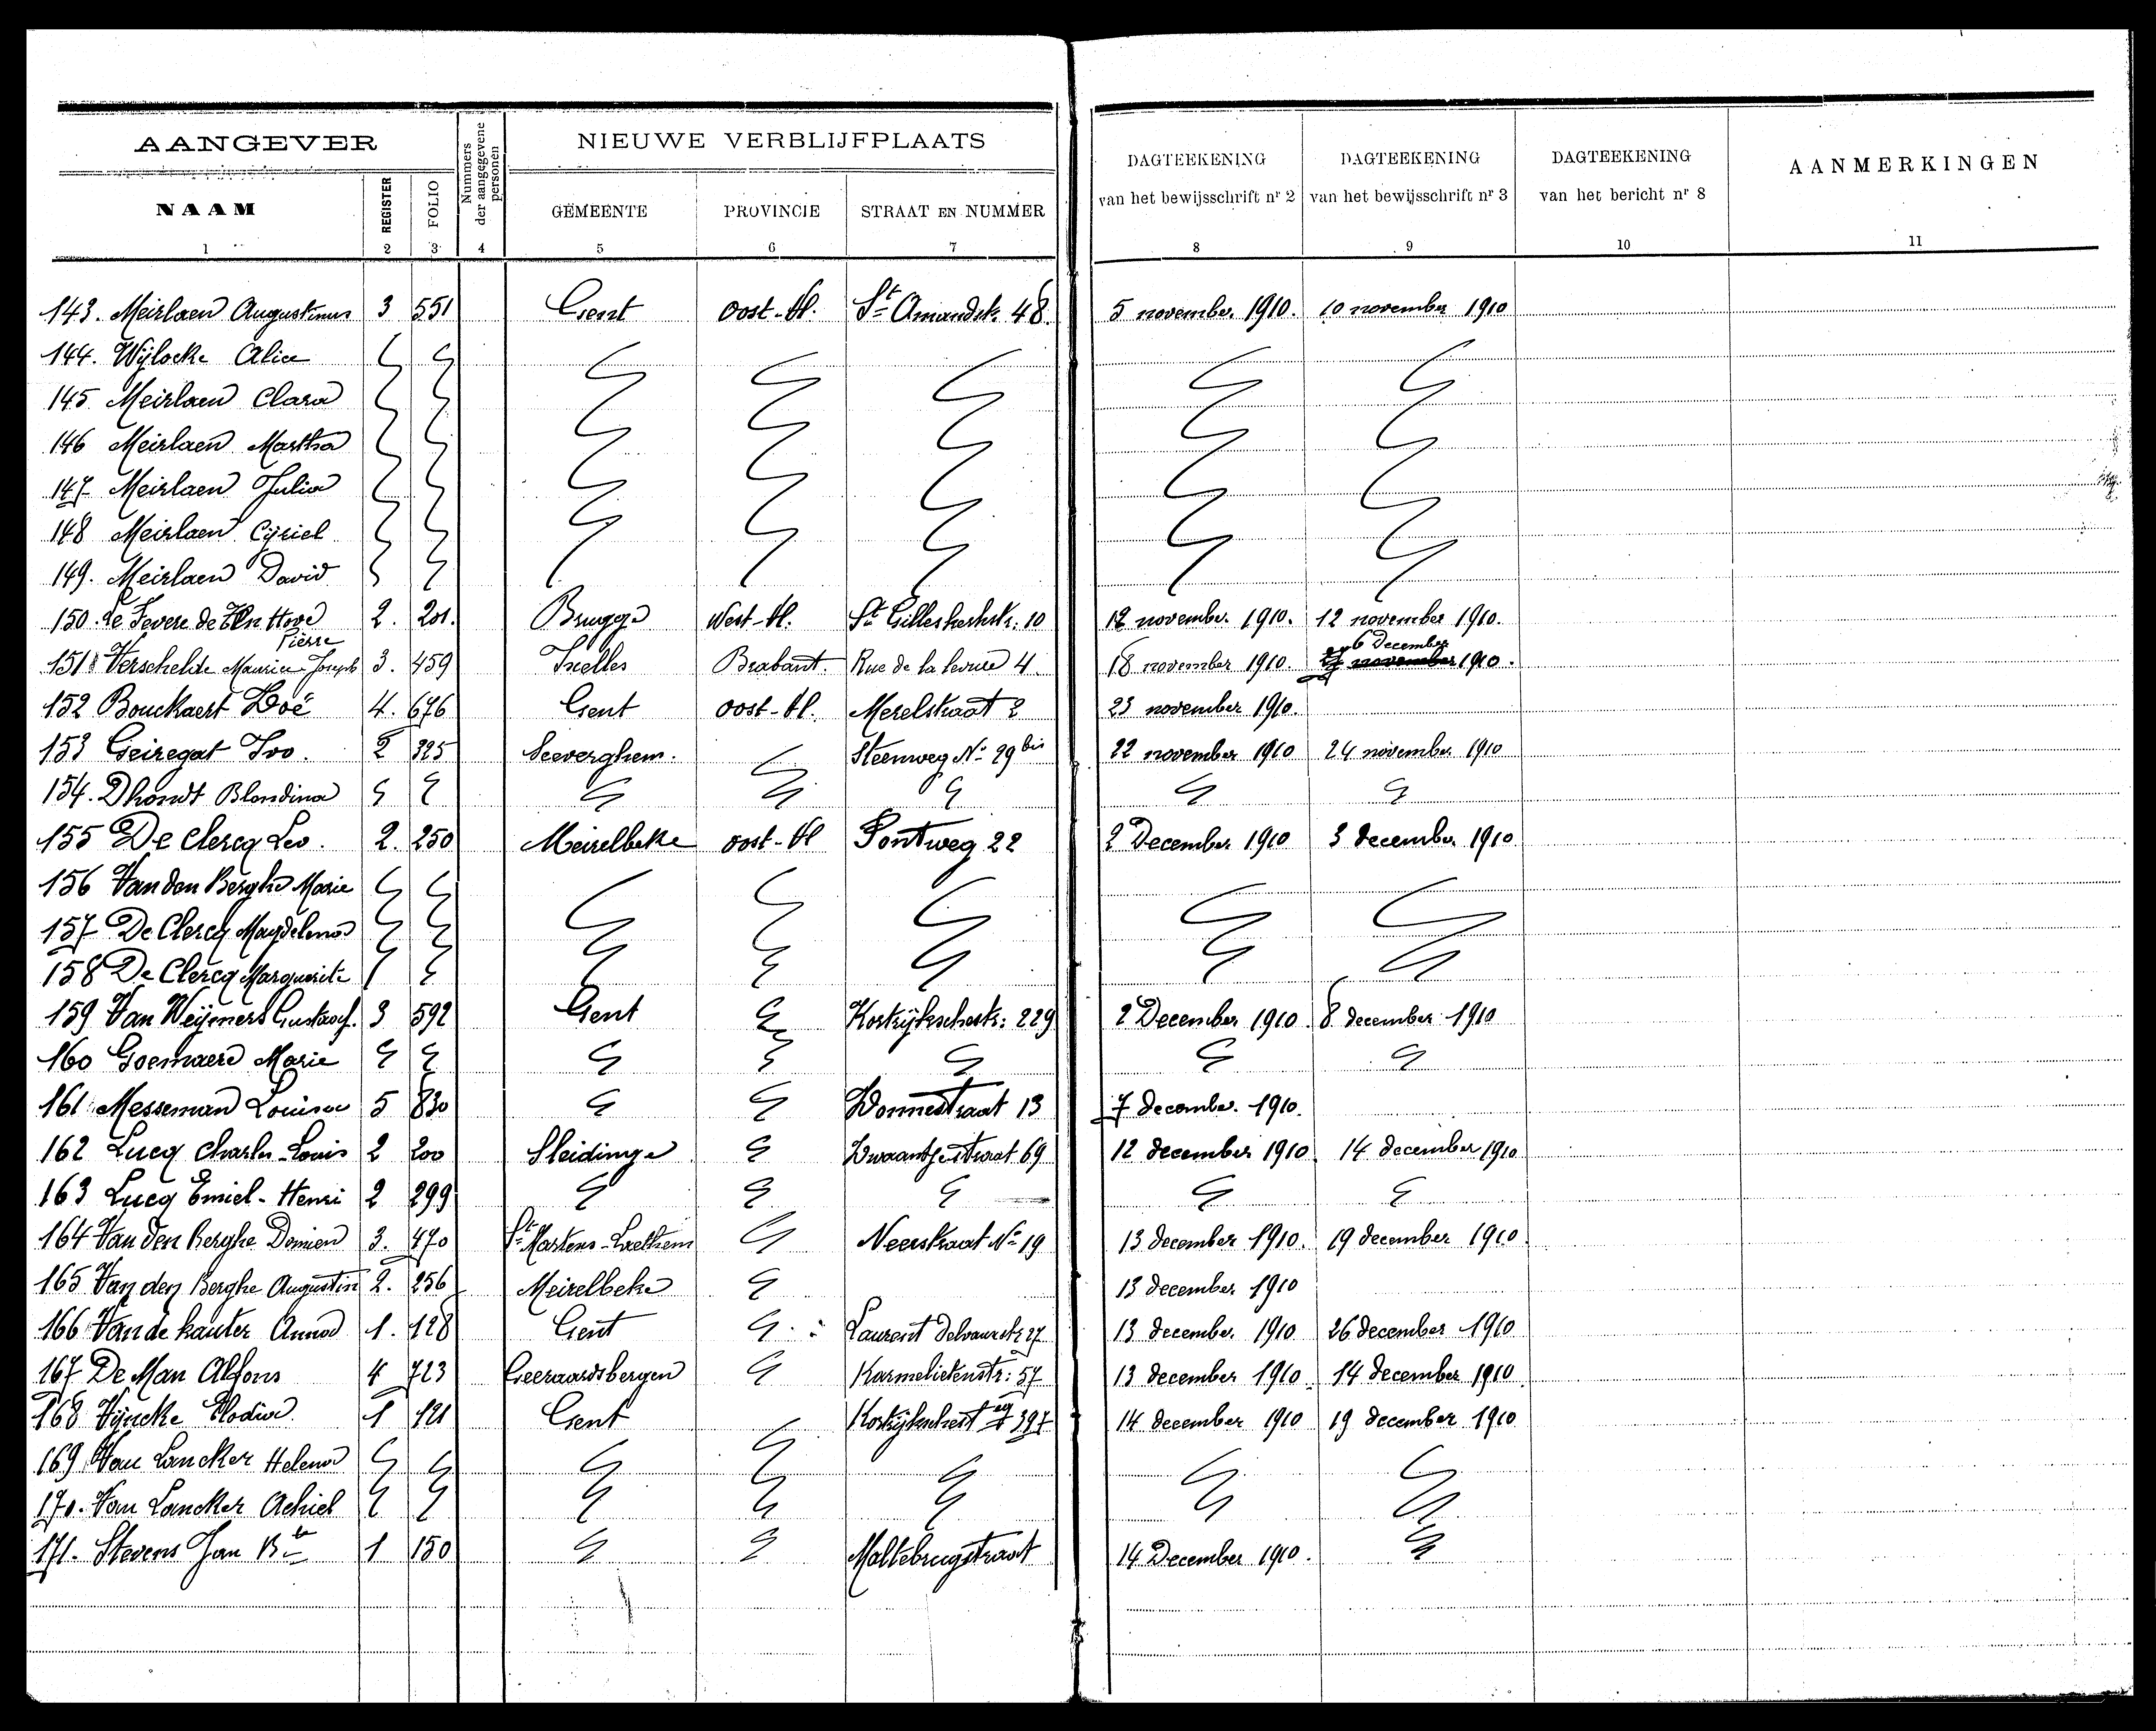 AANGEVER
Nummers der aangegevene personen
NIEUWE VERBLIJFPLAATS
DAGTEEKENING van het bewijsschrift nr 2
DAGTEEKENING van het bewijsschrift nr 3
DAGTEEKENING van het bericht nr 8
AANMERKINGEN
NAAM REGISTER FOLIO GEMEENTE PROVINCIE STRAAT EN NUMMER
1 2 3 4 5 6 7 8 9 10 11
143. Meirlaen Augustinus 3 551 Gent Oost-Vl. St Amandstr. 48. 5 november. 1910. 10 november 1910
144. Wijlocke Alice
145. Meirlaen Clara
146 Meirlaen Martha
147 Meirlaen Julia
148 Meirlaen Cyriel
149. Meirlaen David
150. Le Fevere de Ten Hove 2. 201. Brugge West-Vl. St Gilleskerkstr. 10 12 november. 1910. 12 november 1910.
Pierre 6 December
151 Verschelde Maurice-Joseph 3. 459 Ixelles Brabant. Rue de la 4. 18 november 1910. november 1910.
152 Bouckaert Zoë 4. 676 Gent Oost-Vl. Merelstraat 2 23 november 1910.
153 Geiregat Ivo. 2 325 Seeverghem. Steenweg No 29 bis 22 november 1910 24 november 1910
154. Dhondt Blondina
155 De Clercq Leo. 2. 250 Meirelbeke oost-Vl Pontweg 22 2 December. 1910 3 december. 1910.
156 Van den Berghe Marie
157 De Clercq Magdelena
158 De Clercq Marguerite
159 Van Weijmers Gustaaf. 3 592 Gent Kortrijkschestr: 229 2 December 1910. 8 december 1910
160 Goemaere Marie
161 Messeman Louisa 5 830 Wonnestraat 13 7 december. 1910.
162 Lucq Charles-Louis 2 200 Sleidinge Zwaantjestraat 69 12 december 1910 14 december 1910
163 Lucq Emiel-Henri 2 299
164 Van den Berghe Domien 3. 470 St Martens-Laethem Neerstraat No 19 13 december 1910. 19 december 1910.
165 Van den Berghe Augustin 2. 256 Meirelbeke 13 december 1910
166 Van de kauter Anna 1. 128 Gent Laurent Delvauxstr 27 13 december. 1910 26 december 1910
167 De Man Alfons 4 723 Geeraardsbergen Karmelietenstr: 57 13 december 1910. 14 december 1910.
168 Vyncke Elodia 1 121 Gent 397 14 december 1910 19 december 1910
169 Van Lancker Helena
170. Van Lancker Achiel
171. Stevens Jan Bte 1 150 Maltebrugstraat 14 December 1910.